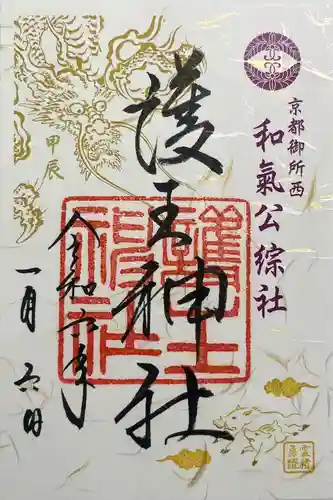 京都御所西
和氣公綜社
護王神社
甲辰
令和六年
一月六日
護王神社